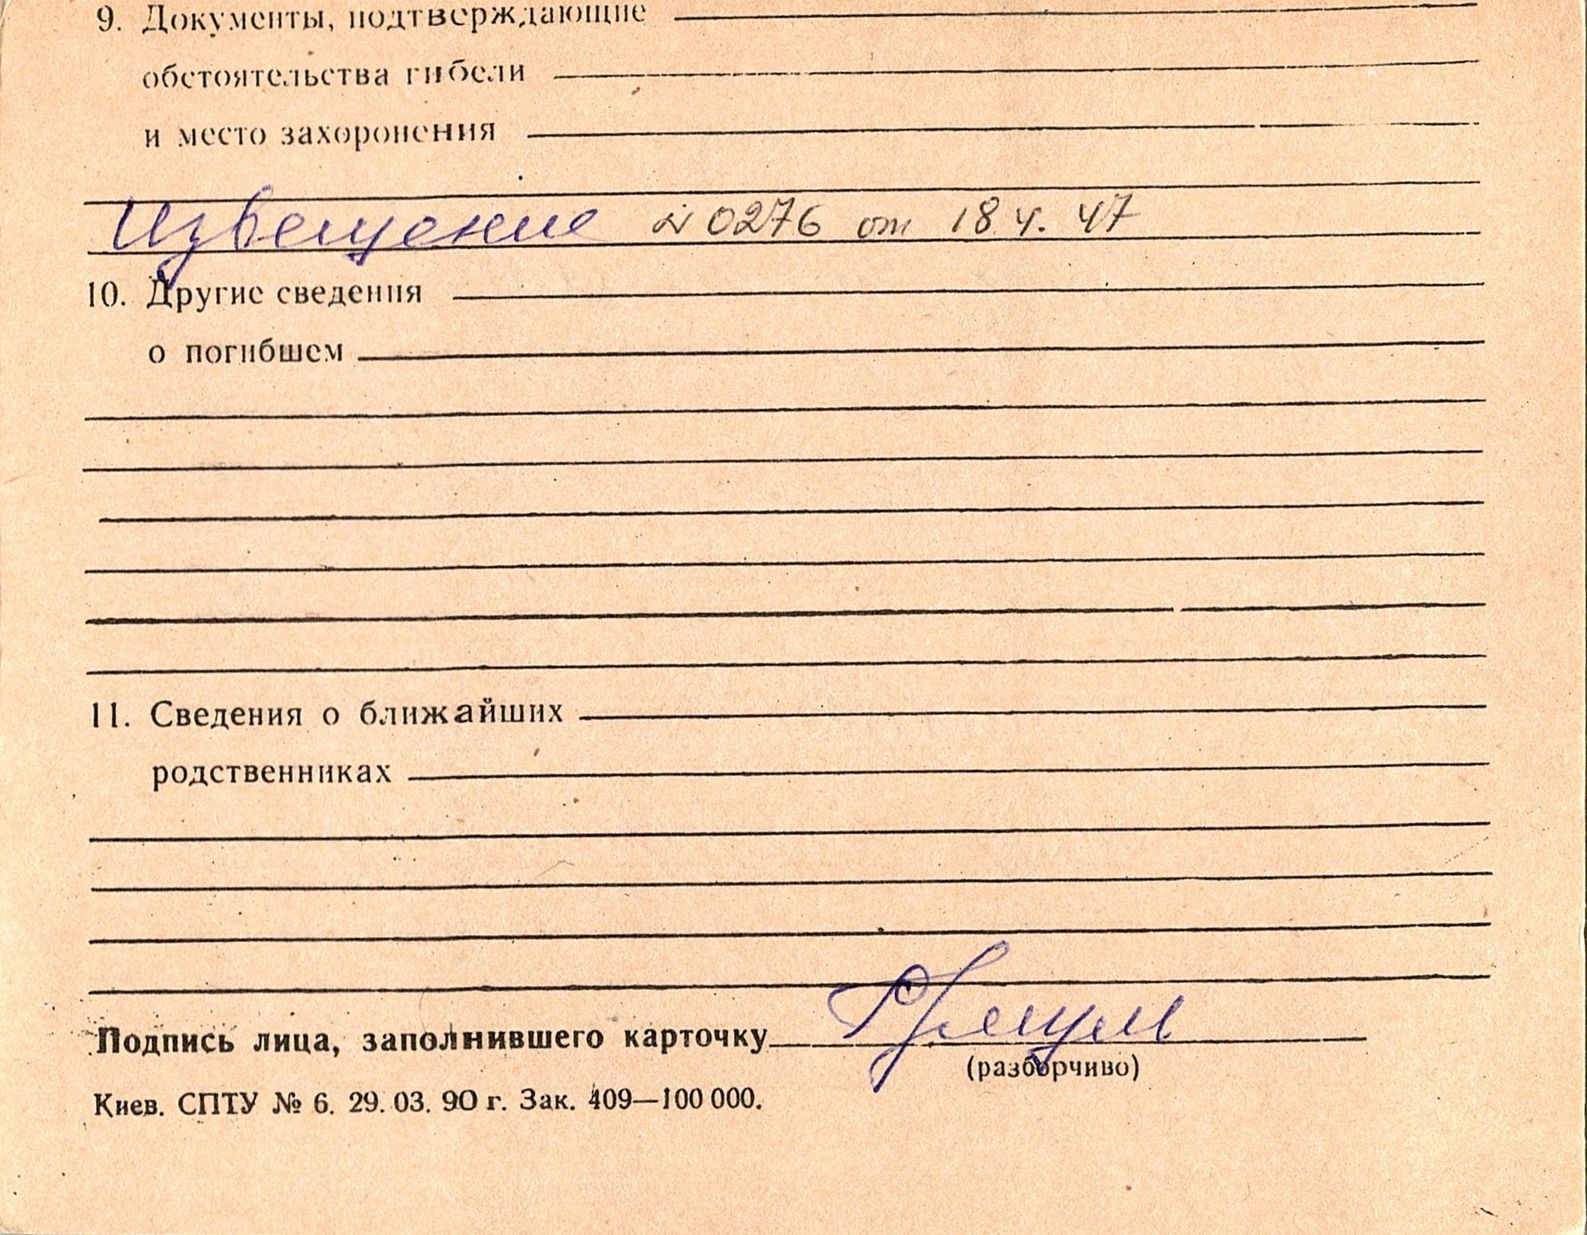 9. Документы, подтверждающие
обстоятельства гибели
и место захоронения
Извещение № 0276 от 18 4. 47
10. Другие сведения
о погибшем
11. Сведения о ближайших
родственниках
Подпись лица, заполнившего карточку
(разборчиво)
Киев. СПТУ № 6. 29. 03. 90 г. Зак. 409—100 000.